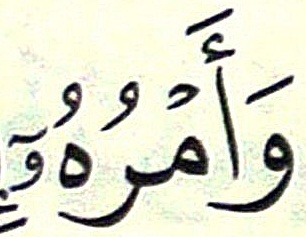 وَأَمْرُهُۥٓ